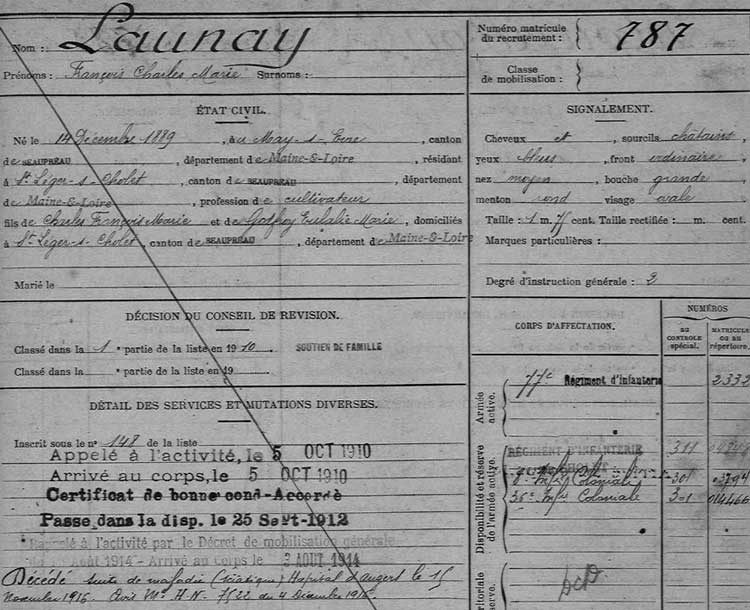 Nom : Launay
Prénoms : François Charles Marie Surnoms :
ÉTAT CIVIL.
Né le 14 Décembre 1889, à u May-s-Evre, canton
de BEAUPRÉAU, département de Maine-&-Loire, résidant
à St Léger-s-Cholet, canton de BEAUPREAU, département
de Maine-&-Loire, profession de cultivateur
fils de Charles François Marie et de Godfroy Eulalie Marie, domiciliés
à St Léger-s-Cholet, canton de BEAUPRÉAU, département de Maine-&-Loire
Marié le
DÉCISION DU CONSEIL DE REVISION.
Classé dans la 1e partie de la liste en 1910 SOUTIEN DE FAMILLE
Classé dans la e partie de la liste en 19
DÉTAIL DES SERVICES ET MUTATIONS DIVERSES.
Inscrit sous le no 148 de la liste
Appelé à l'activité, le 5 OCT 1910
Arrivé au corps, le 5 OCT 1910
Certificat de bonne cond-Accordé
Passe dans la disp. le 25 Sept-1912
Rappelé à l'activité par le Décret de mobilisation générale
Août 1914 - Arrivé au Corps le 3 AOUT 1914
Décédé suite de maladie (sciatique) Hopital d'angers le 15
Novembre 1916. Avis Me H.N. 7522 du 4 Décembre 1916.
Numéro matricule du recrutement : 787
Classe de mobilisation :
SIGNALEMENT.
Cheveux et, sourcils châtains
yeux bleus, front ordinaire
nez moyen, bouche grande
menton rond visage ovale
Taille : 1 m. 75 cent. Taille rectifiée : m. cent.
Marques particulières :
Degré d'instruction générale : 2
CORPS D'AFFECTATION.
NUMÉROS
AU CONTROLE spécial.
MATRICULE OU AU répertoire.
Armée active.
77e Régiment d'infanterie 2332
Disponibilité et réserve de l'armée active.
RÉGIMENT D'INFANTERIE 311
Coloniale 301
36e Coloniale 301 014466
Territoriale
serve.
dcd